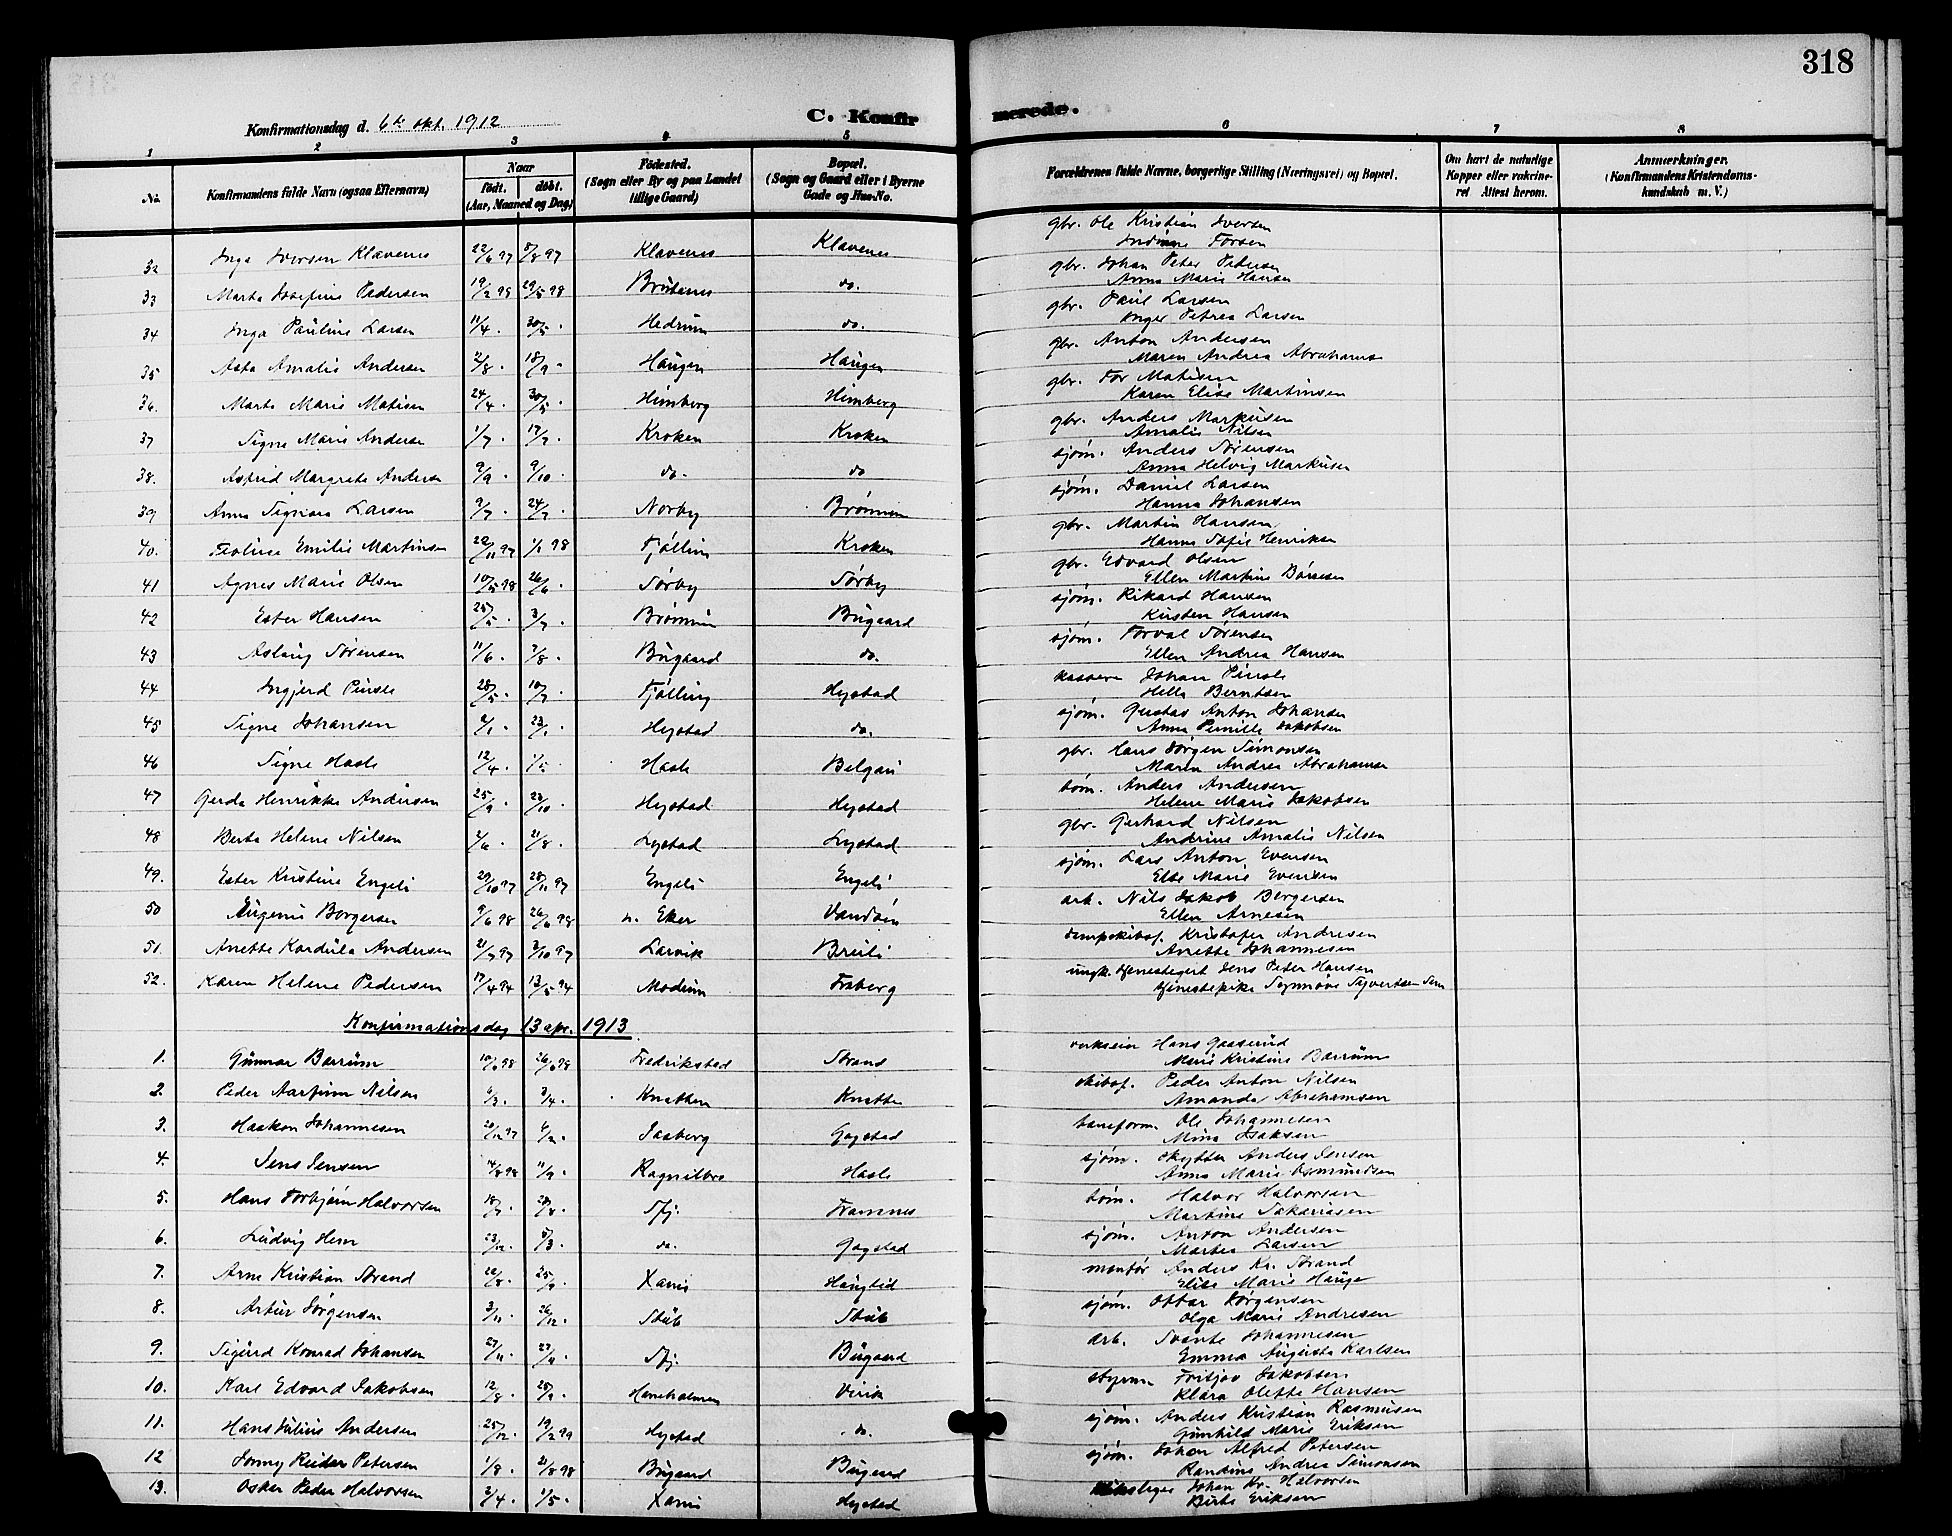 318
Konfirmationsdag d. 6te okt. 1912
C. Konfirmerede.
1 2 3 4 5 6 7 8
No Konfirmandens fulde Navn (ogsaa Efternavn) Naar født. døbt. (Aar, Maaned og Dag) Fødested. (Sogn eller By og paa Landet tillige Gaard) Bopæl. (Sogn og Gaard eller i Byerne Gade og Hus-No.) Forældrenes fulde Navne, borgerlige Stilling (Næringsvei) og Bopæl. Om havt de naturlige Kopper eller vakcineret Attest herom. Anmærkninger. (Konfirmandens Kristendomskundskab m. V.)
32 Inga Iversen Klavenes 22/6 97 8/8 97 Klavenes Klavenes gbr. Ole Kristian Iversen
33 Marta Josefine Pedersen 29/5 98 do. gbr. Johan Peter Pedersen
Anna Marie Hansen
34 Inga Pauline Larsen 11/4 . 30/5 . Hedrum do. gbr. Paul Larsen
Inger Petrea Larsen
35 Asta Amalie Andersen 2/8 . 18/9 . Haugen Haugen gbr. Anton Andersen
Maren Andrea Abrahamse
36. Marta Marie Matisen 24/4 . 30/5 . Himberg Himberg gbr. Tor Matisen
Karen Elise Martinsen
37 Signe Marie Anderse 1/7 . 17/7 . Kroken Kroken gbr. Anders Markusen
Amalie Nilsen
38. Astrid Margrete Anderse 9/9 . 9/10 . do. do sjøm. Anders Sørensen
Anna Helvig Markusen
39 Anna Larsen 9/7 . 24/7 . Norby Brønnum sjøm. Daniel Larsen
Hanna Johansen
40. Emilie Martinsen 1/1 98 Tjølling Kroken gbr. Martin Hansen
Hanna Sofie Henrikse
41 Agnes Marie Olsen 10/5 98 26/6 . Sørby Sørby gbr. Edvard Olsen
Ellen Martine
42 Ester Hansen 25/5 . 3/7 . Brønnum Bugaard sjøm. Rikard Hansen
Kirsten Hansen
43 Aslaug Sørensen 11/6 . 7/8 . Bugaard do. sjøm. Torval Sørensen
Ellen Andrea Hansen
44 Ingjerd 28/5 . 10/7 . Tjølling Hystad kaserer Johan
Helle Berntsen
45 Signe Johansen Hystad do. sjøm. Gustav Anton Johansen
Anna Pernille Jakobsen
46 Signe Hasle 12/4 . 1/5 . Hasle Belgau gbr. Hans Jørgen Simonsen
Maren Andrea Abrahamse
47 Gerda Henrikke Andersen 25/9 . 23/10 . Hystad Hystad tøm. Anders Andersen
Helene Marie Jakobsen
48 Berta Helene Nilsen 21/8 . Lystad Lystad gbr. Gerhard Nilsen
Andrine Amalie Nilsen
49. Ester Kristine Engeli 29/10 97 28/11 97 Engeli Engeli sjøm. Lars Anton Evensen
Else Marie Evensen
50 Eugenie Borgersen 9/6 98 26/6 98 n. Eker arb. Nils Jakob Bergersen
Ellen Arnesen
51. Anette Kordula Andersen 21/7 97 3/10 97 Larvik Breili Kristofer Andresen
Anette Johannesen
52. Karen Helene Pedersen 17/4 94 13/5 94 Modum ungk. tjenestegut Jens Peter Hansen
tjenestepike Synnøve Syvertsen
Konfirmationsdag 13 apr. 1913
1. Gunnar Barrum Fredrikstad Strand verkseier Hans Gaaserud
Marie Kristine Barrum
2. Peder Aarfinn Nilsen 3/4 . Knatten Knatten skibsf. Peder Anton Nilsen
Amanda Abrahamsen
3. Haakon Johannesen Gogstad baneform. Ole Johannesen
Mina Isaksen
4. Jens Jensen 14/8 98 11/9 . Hasle sjøm. Skytter Anders Jensen
Anna Marie Osmundsen
5. Hans Torbjørn Halvorsen 18/7 . 28/8 . Sfj. Framnes tøm. Halvor Halvorsen
Martine Sakariasen
6. Ludvig Hem 23/12 . do. Gogstad sjøm. Anton Andersen
Martea Larsen
7. Arne Kristian Strand 25/9 . Haugtid montør Anders Kr. Strand
Elise Marie Hauge
8. Artur Jørgensen 3/11 . 26/12 . Stub Stub sjøm. Ottar Jørgensen
Olga Marie Andresen
9. Sigurd Konrad Johansen Sfj. Bugaard arb. Svante Johannesen
Emma Augusta Karlsen
10. Karl Edvard Jakobsen 12/8 . 25/9 . Virik styrm. Fritjov Jakobsen
Klara Olette Hansen
11. Hans Julius Andersen 25/12 . 19/2 99 Hystad do. sjøm. Anders Kristian Rasmusen
Gunhild Marie Eriksen
12 Jonny Reidar Petersen 1/8 . 21/8 98 Bugaard Bugaard sjøm. Johan Alfred Petersen
Randine Andrea Simonsen
13. Oskar Peder Halvorsen 3/4 . 1/5 . Hystad Johan Kr. Halvorsen
Berte Eriksen